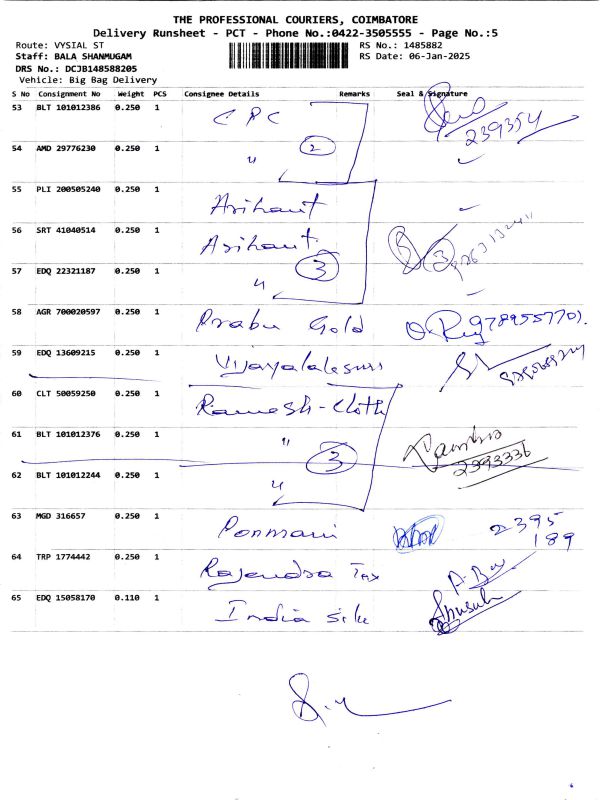 THE PROFESSIONAL COURIERS, COIMBATORE
Delivery Runsheet - PCT - Phone No.:0422-3505555 - Page No.:5
Route: VYSIAL ST RS No.: 1485882
Staff: BALA SHANMUGAM RS Date: 06-Jan-2025
DRS No.: DCJB148588205
Vehicle: Big Bag Delivery
S No Consignment No Weight PCS Consignee Details Remarks Seal & Signature
53 BLT 101012386 0.250 1 CPC 239354
54 AMD 29776230 0.250 1 " 2
55 PLI 200505240 0.250 1 Arihant
56 SRT 41040514 0.250 1 Arihant 3
57 EDQ 22321187 0.250 1 " 3
58 AGR 700020597 0.250 1 Prabu Gold
59 EDQ 13609215 0.250 1
60 CLT 50059250 0.250 1 Ramesh-Cloth
61 BLT 101012376 0.250 1 " 3 2393336
62 BLT 101012244 0.250 1 "
63 MGD 316657 0.250 1 Ponmani 2395
189
64 TRP 1774442 0.250 1 Rajendra Tax
65 EDQ 15058170 0.110 1 India silk